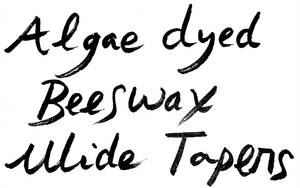 Algae dyed
Beeswax
Wide Tapers